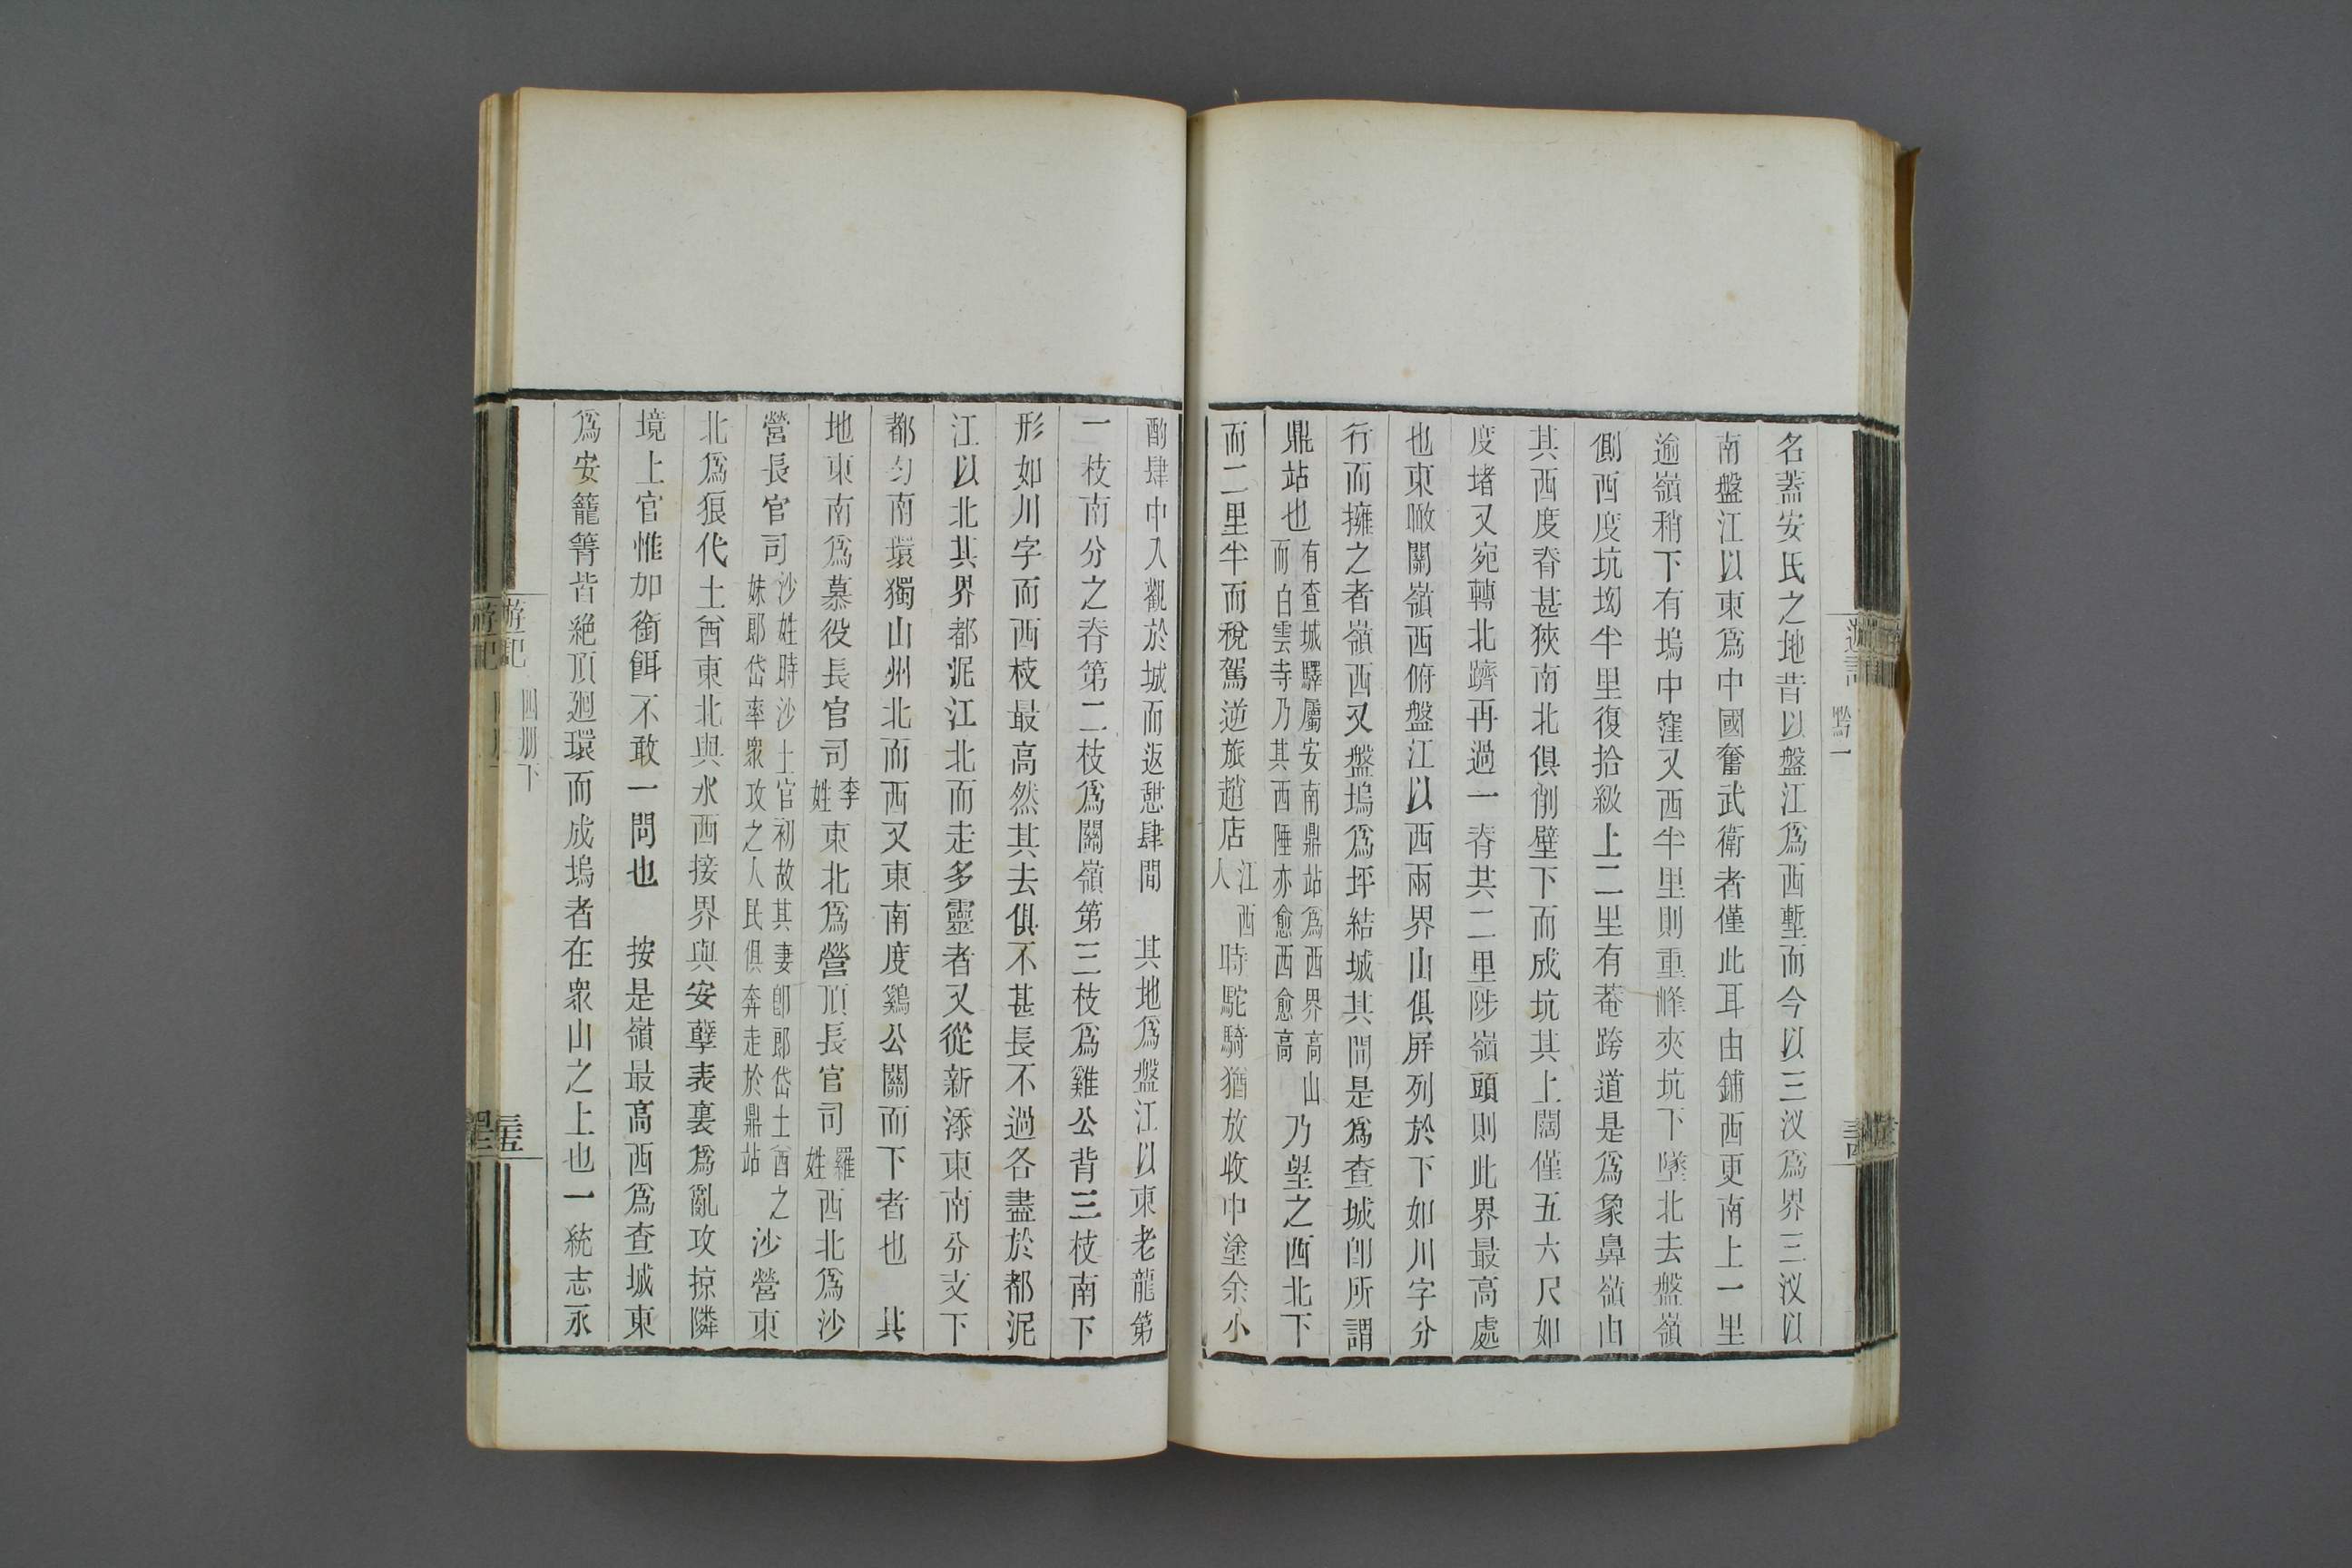 名蓋安氏之地昔以盤江爲西塹而今以三汊爲界三汊以
南盤江以東爲中國奮武衛者僅此耳由鋪西更南上一里
逾嶺稍下有塢中窪又西半里則重峰夾坑下墜北去盤嶺
側西度坑坳半里復拾級上二里有菴跨道是爲象鼻嶺由
其西度脊甚狹南北俱削壁下而成坑其上闊僅五六尺如
度堵又宛轉北躋再過一脊共二里陟嶺頭則此界最高處
也東瞰關嶺西俯盤江以西兩界山俱屏列於下如川字分
行而擁之者嶺西又盤塢爲坪結城其間是爲查城卽所謂
鼎站也有查城驛屬安南鼎站爲西界高山而白雲寺乃其西陲亦愈西愈高乃望之西北下
而二里半而稅駕逆旅趙店江西人時駝騎猶放收中塗余小
酌肆中入觀於城而返憩肆間　其地爲盤江以東老龍第
一枝南分之脊第二枝爲關嶺第三枝爲雞公背三枝南下
形如川字而西枝最高然其去俱不甚長不過各盡於都泥
江以北其界都泥江北而走多靈者又從新添東南分支下
都勻南環獨山州北而西又東南度鷄公關而下者也　其
地東南爲慕役長官司李姓東北爲營頂長官司羅姓西北爲沙
營長官司沙姓時沙土官初故其妻卽郎岱土酋之妹郎岱率衆攻之人民俱奔走於鼎站沙營東
北爲狼代土酋東北與水西接界與安孽表裏爲亂攻掠隣
境上官惟加銜餌不敢一問也　按是嶺最高西爲查城東
爲安籠箐皆絶頂廻環而成塢者在衆山之上也一統志永
遊記
四册下
遊記
黔一